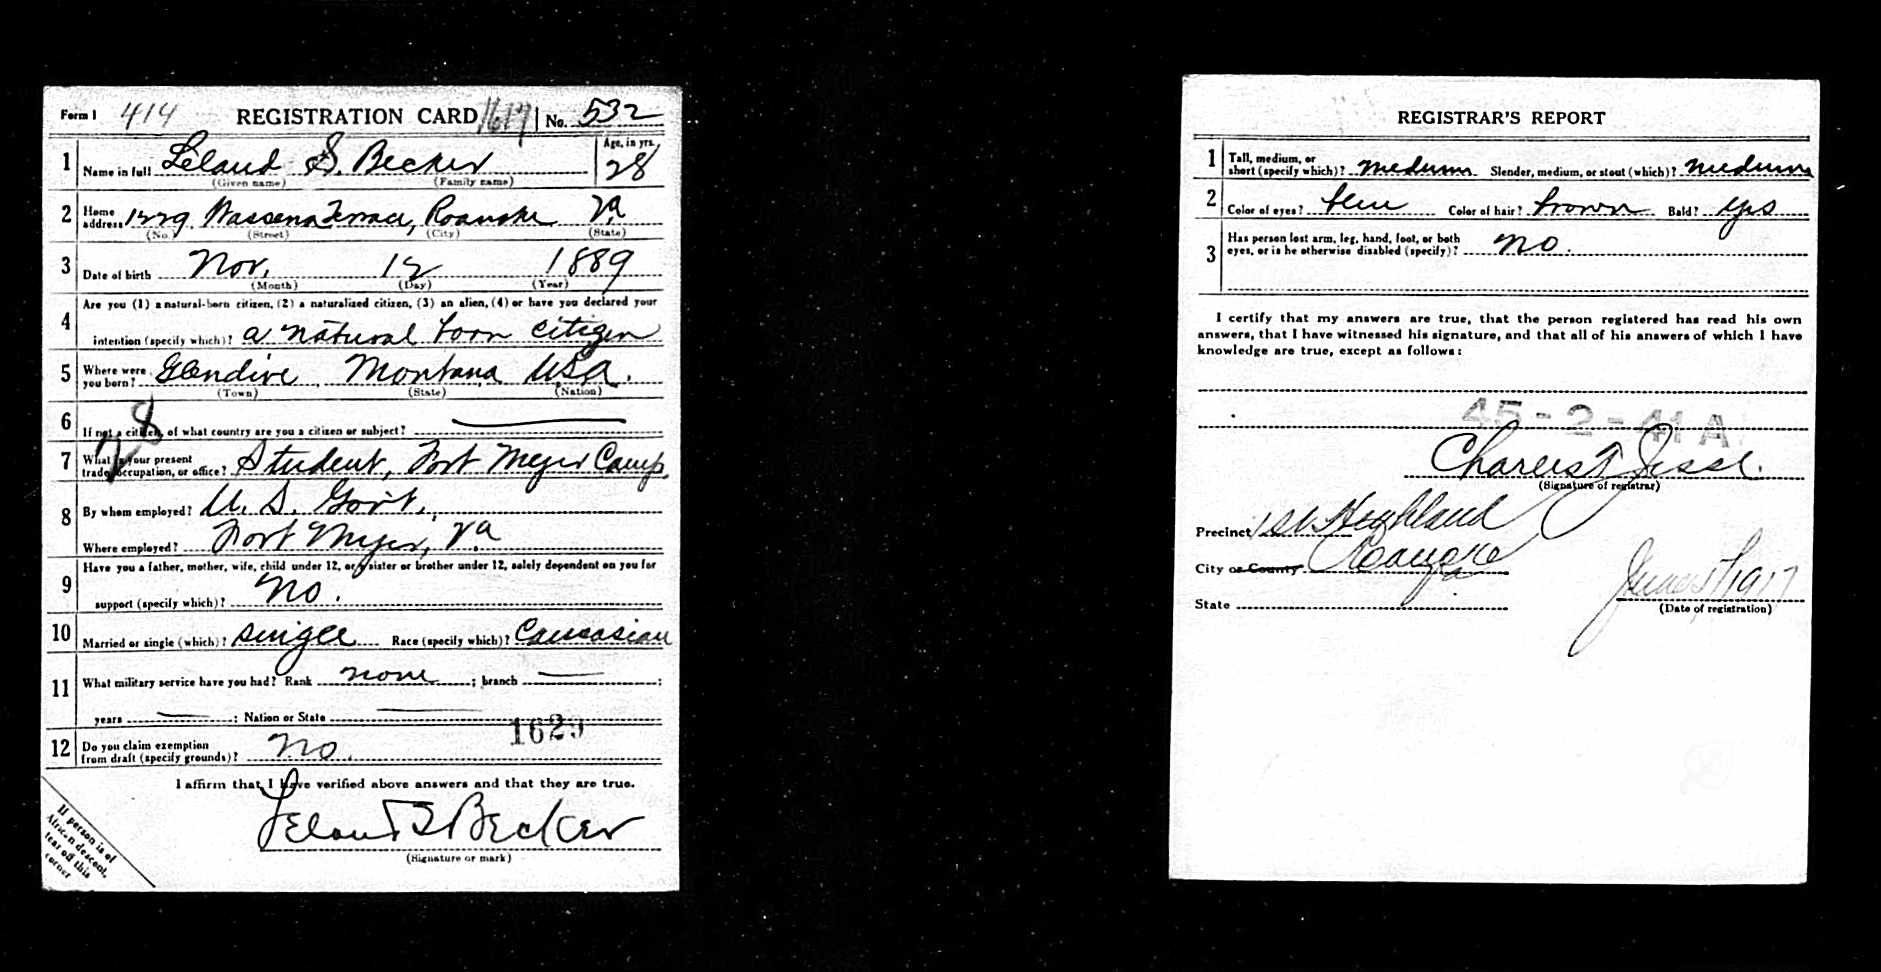 Form 1 414 REGISTRATION CARD 1619 No. 532
1 Name in full Leland S. Becker Age, in yrs. 28
(Given name) (Family name)
2 Home address 1229 Wassena Terrace, Roanoke Va
(No.) (Street) (City) (State)
3 Date of birth Nov. 12 1889
(Month) (Day) (Year)
4 Are you (1) a natural-born citizen, (2) a naturalized citizen, (3) an alien, (4) or have you declared your
intention (specify which)? a natural born citizen
5 Where were you born? Glendive Montana USA.
(Town) (State) (Nation)
6 If not a citizen, of what country are you a citizen or subject?
28
7 What is your present trade, occupation, or office? Student, Fort Meyer Camp
8 By whom employed? U. S. Govt.
Where employed? Fort Meyer, Va
9 Have you a father, mother, wife, child under 12, or a sister or brother under 12, solely dependent on you for
support (specify which)? No.
10 Married or single (which)? Single Race (specify which)? Caucasian
11 What military service have you had? Rank none ; branch ;
years ; Nation or State
1629
12 Do you claim exemption from draft (specify grounds)? No.
I affirm that I have verified above answers and that they are true.
Leland S Becker
(Signature or mark)
If person is of
African descent,
tear off this
corner
REGISTRAR'S REPORT
1 Tall, medium, or short (specify which)? medium Slender, medium, or stout (which)? medium
2 Color of eyes? blue Color of hair? brown Bald? yes
3 Has person lost arm, leg, hand, foot, or both
eyes, or is he otherwise disabled (specify)? No.
I certify that my answers are true, that the person registered has read his own
answers, that I have witnessed his signature, and that all of his answers of which I have
knowledge are true, except as follows:
45-2-41 A
Jesse.
(Signature of registrar)
Precinct Highland
City or County Roanoke
State
June 5 1917
(Date of registration)